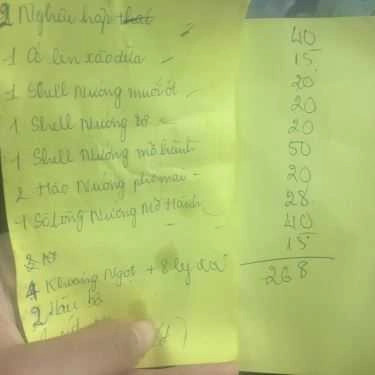 2 Nghêu hấp thái
1 Ốc len xào dừa
1 Shell Nướng muối ớt
1 Shell Nướng bơ
1 Shell Nướng mỡ hành
2 Hào Nướng phô mai
1 Sò Lông Nướng Mỡ Hành
4 Khoáng Ngọt + 8 ly đá
2
40
15
20
20
20
50
20
28
40
15
268